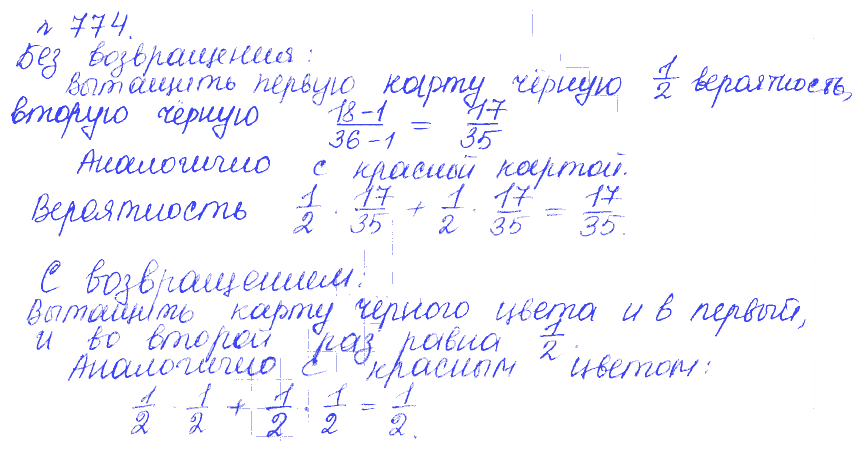 № 774.
Без возвращения:
Вытащить первую карту чёрную 1/2 вероятность,
вторую чёрную (18-1)/(36-1) = 17/35
Аналогично с красной картой.
Вероятность 1/2 · 17/35 + 1/2 · 17/35 = 17/35.
С возвращением:
Вытащить карту черного цвета и в первый,
и во второй раз равна 1/2.
Аналогично с красным цветом:
1/2 · 1/2 + 1/2 · 1/2 = 1/2.